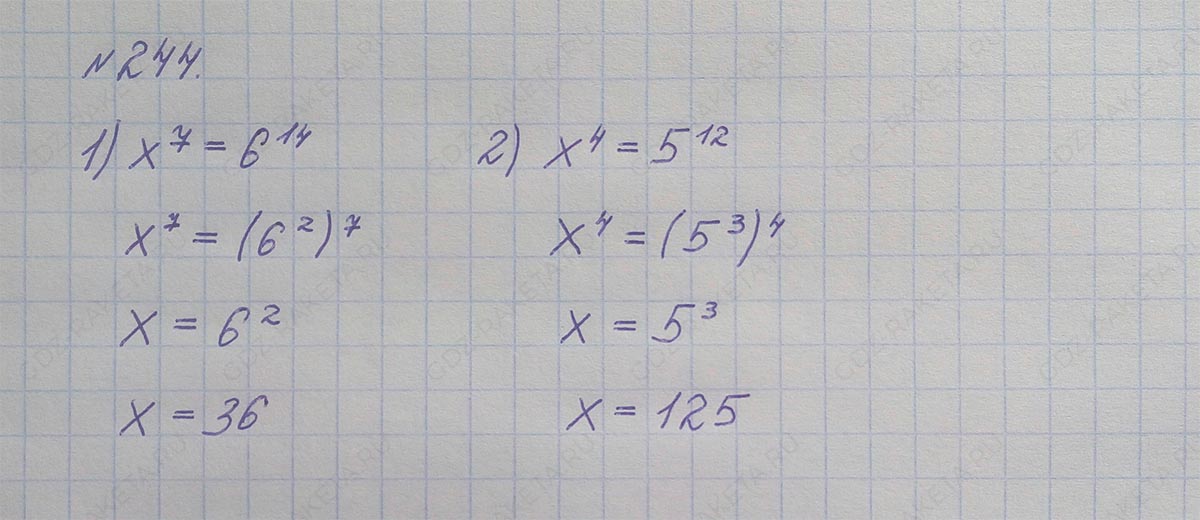 №244.
1) x⁷ = 6¹⁴
x⁷ = (6²)⁷
x = 6²
x = 36
2) x⁴ = 5¹²
x⁴ = (5³)⁴
x = 5³
x = 125
GDZ-RAKETA.RU